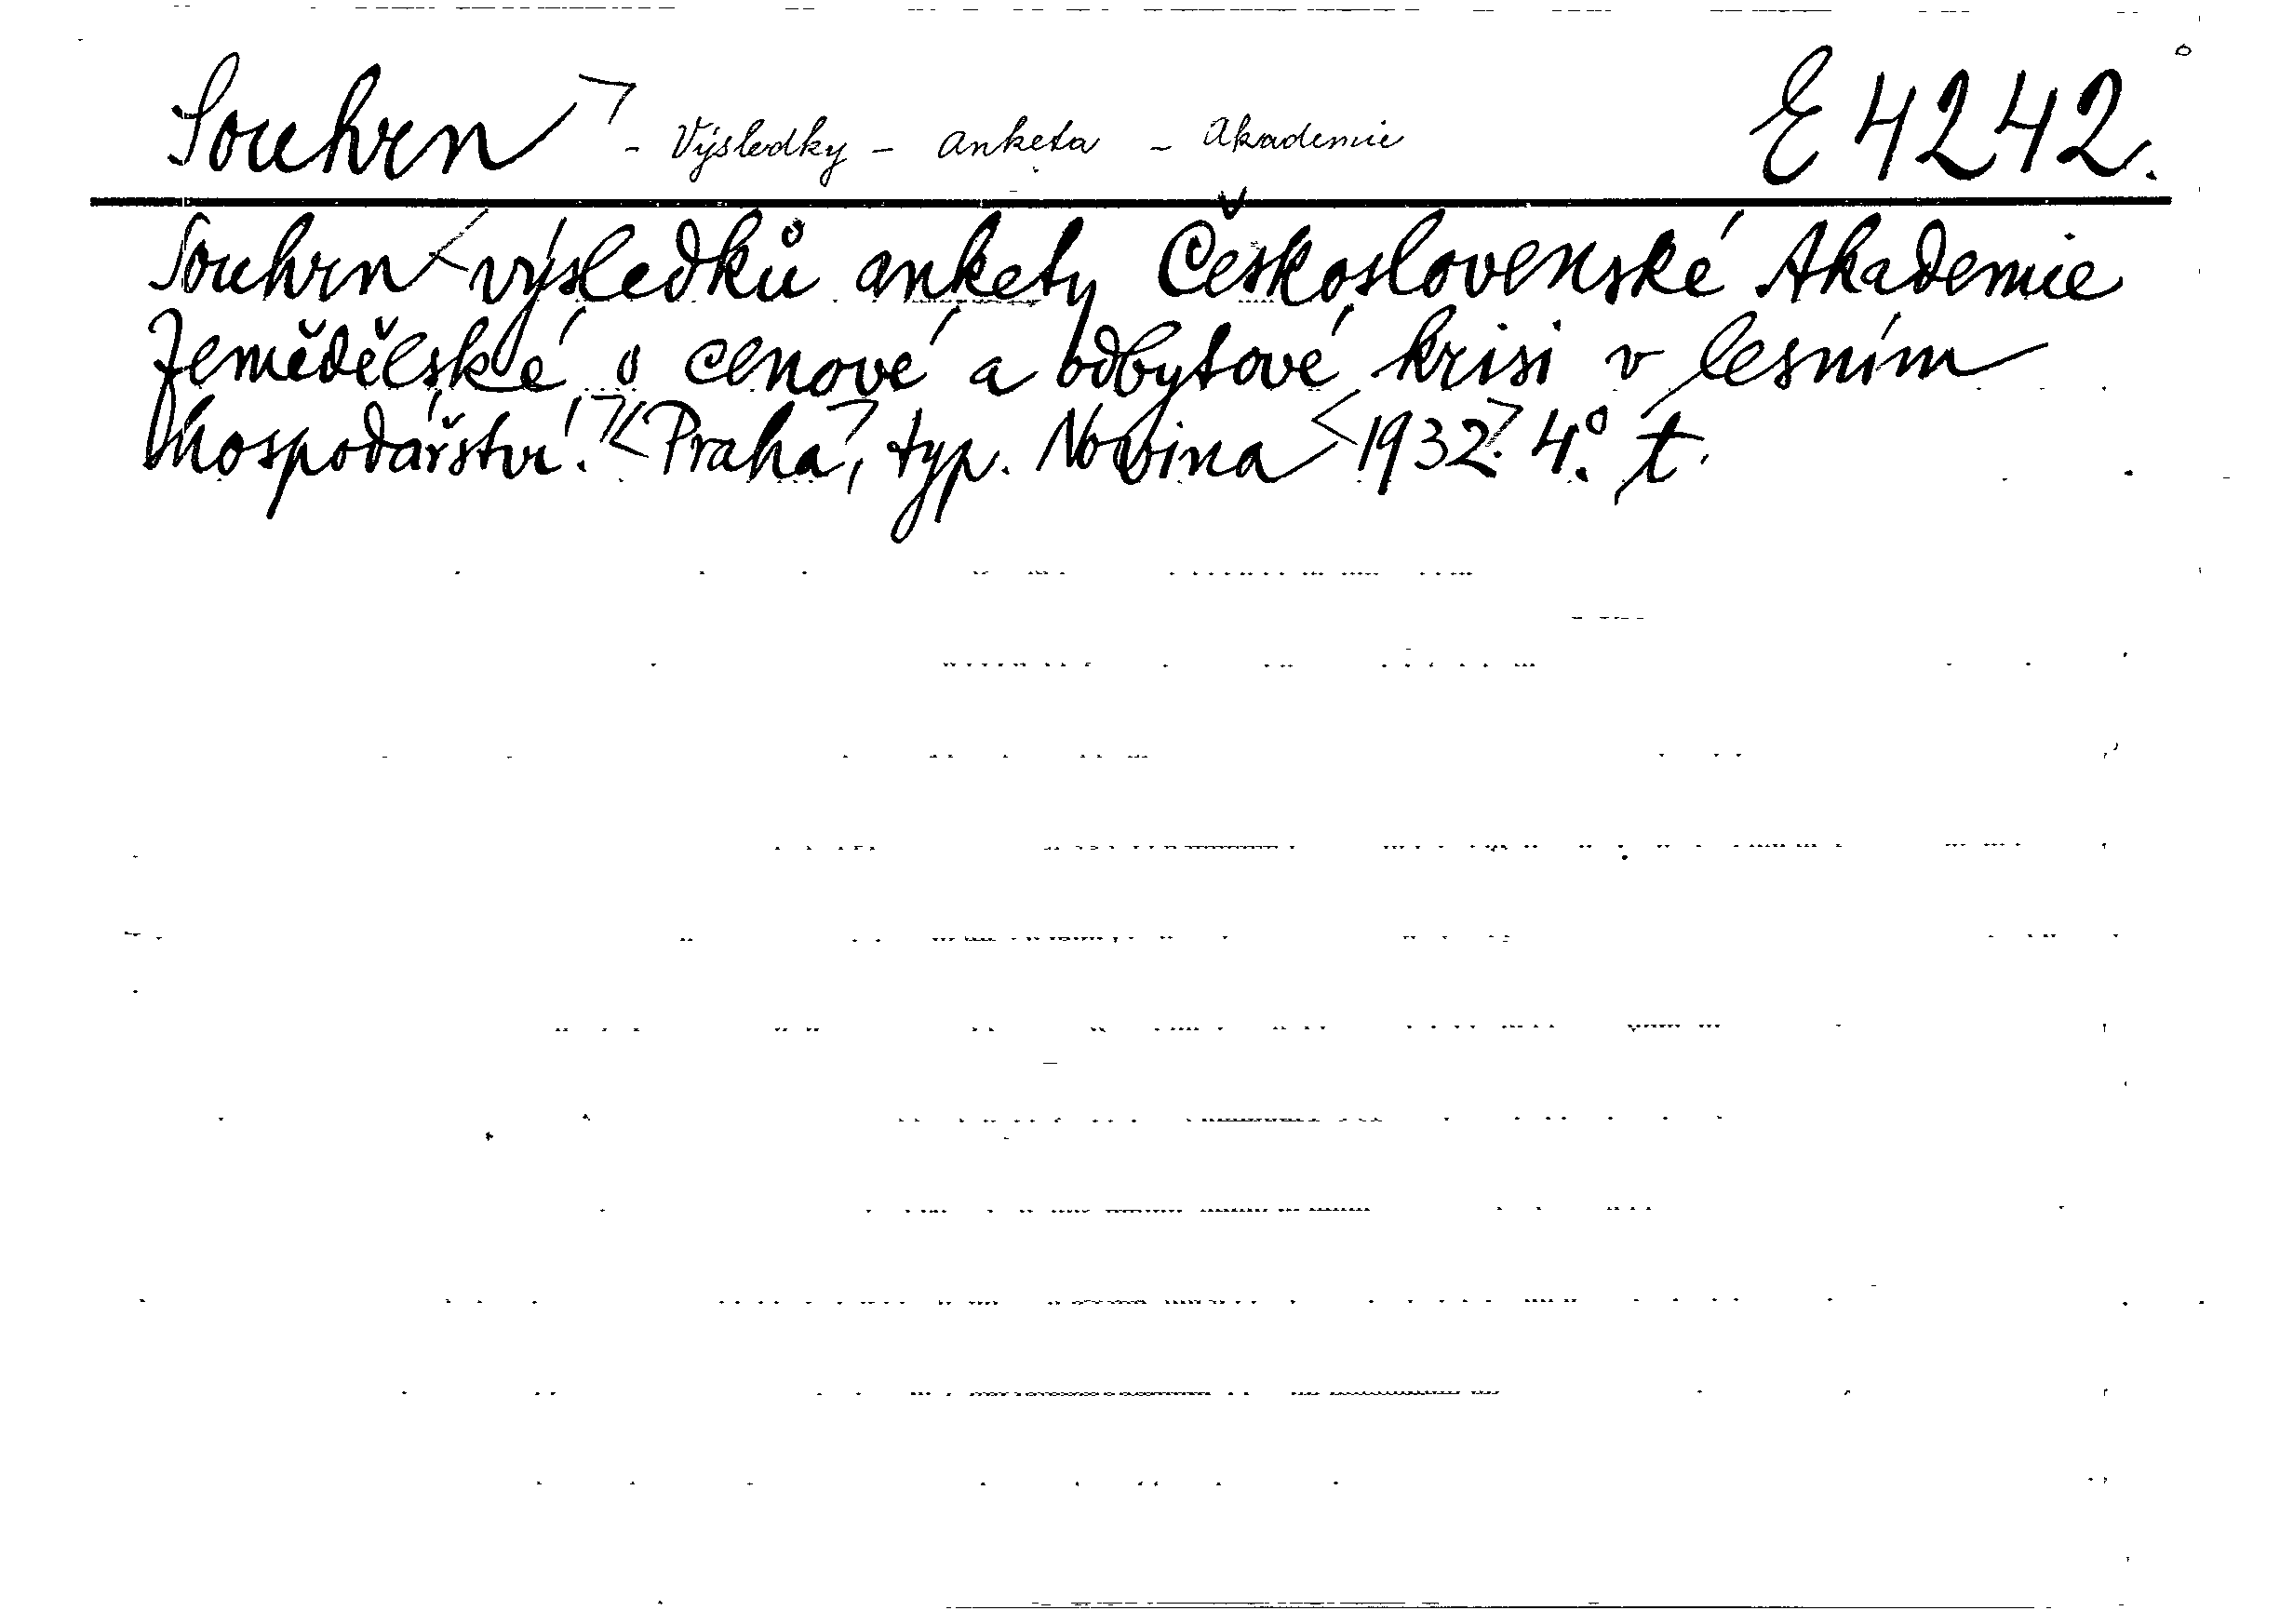 Souhrn - Výsledky - anketa - akademie E 4242.
Souhrn výsledků ankety Československé Akademie
Zemědělské o cenové a odbytové krisi v lesním
hospodářství. Praha, typ. Novina 1932. 4º. t.